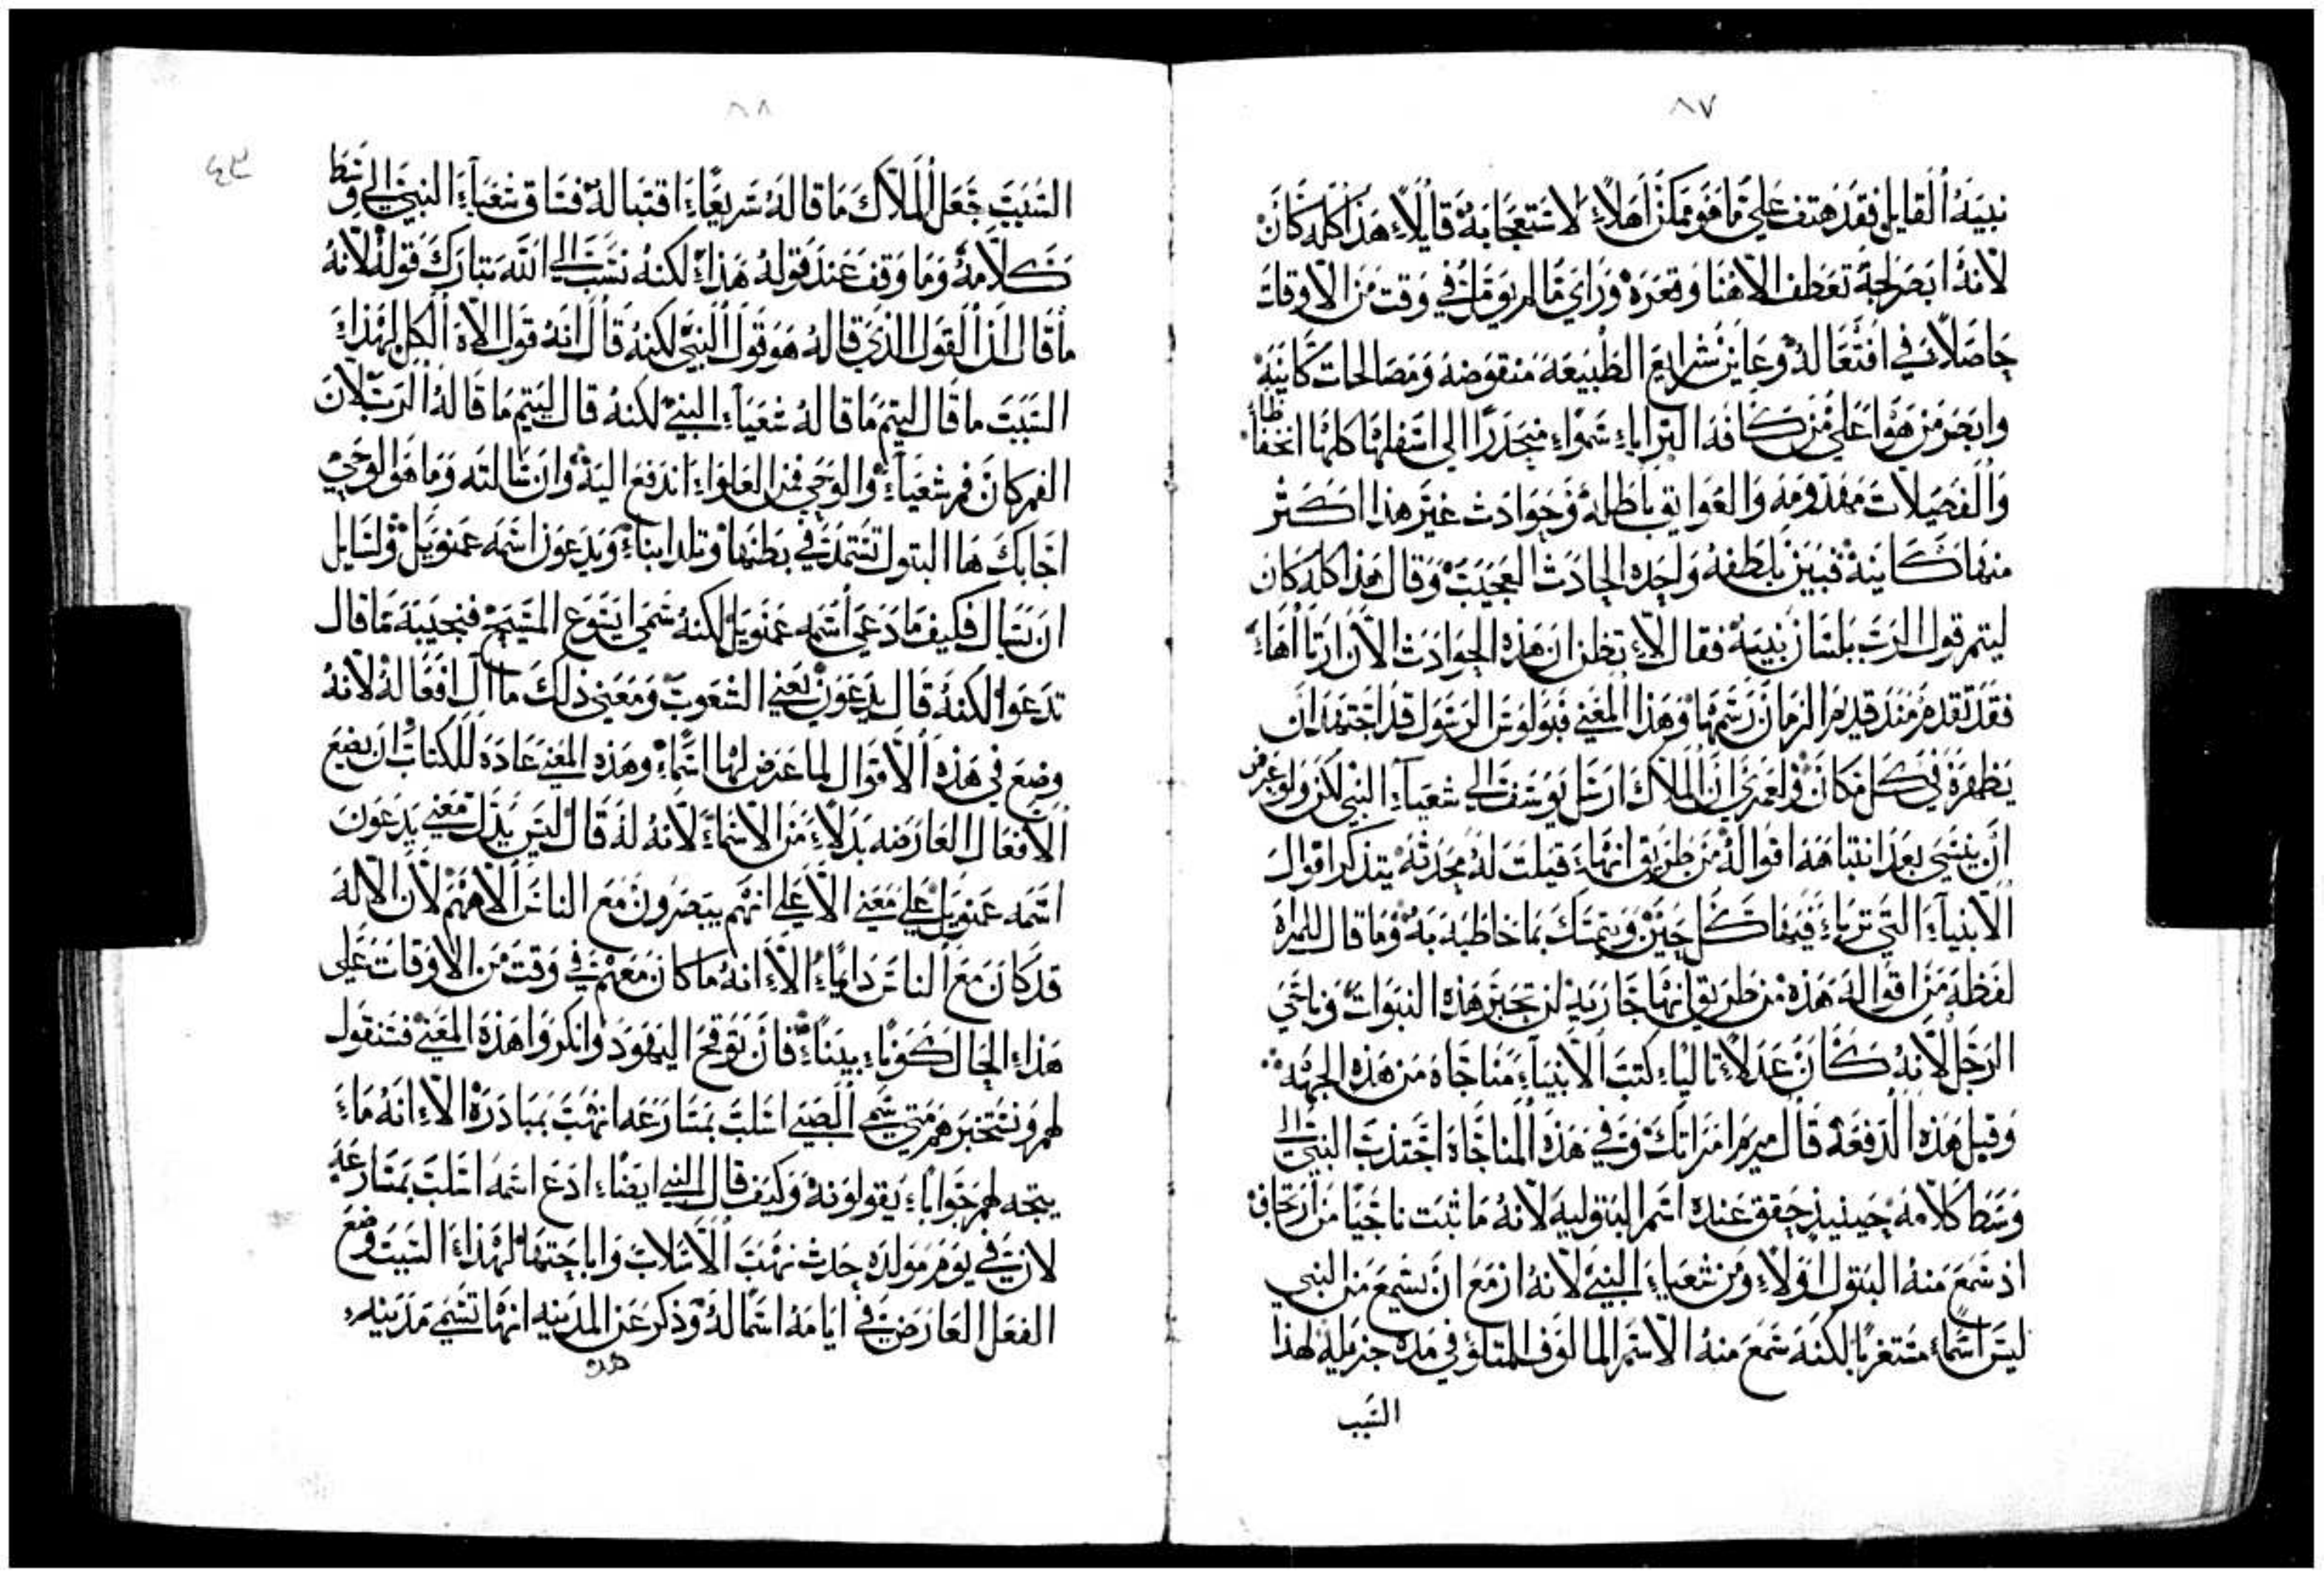 ٨٧
نبيه القايل فقد هتف علي ما هو ممكن اهلاً لاستعجابه قايلاً هذا كله كان
لانه ابصر لجة تعطف الاهنا وقعره وراي ما لم يومل في وقت من الاوقات
حاصلاً في افتعاله وعاين شرايع الطبيعه منقوضه ومصالحات كاينه
وابصر من هو اعلي من كافة البرايا سموا منحدرا الي اسفلها كلها انخفاظا
والفصيلات مهدومه والعوايق باطله وحوادث غير هذا اكثر
منها كاينة فبين بلطفه واحده الحادث العجيب وقال هذا كله كان
ليتم قول الرب بلسان نبيه فقال لا تظن ان هذه الحوادث الان ارتاها
فقد تقدم منذ قديم الزمان رسمها وهذا المعني فبولوس الرسول قد اجتهد ان
يظهره في كل مكان ولعمري ان الملاك ارسل يوسف الي شعياء النبي لكن ولو عرض
ان ينسي بعد انتباهه اقواله من طريق انها قيلت له محدثه يتذكر اقوال
الانبياء التي تربا فيها كل حين ويتمسك بما خاطبه به وما قال للمراه
لفظه من اقواله هذه من طريق انها جاريه لن تخبر هذه النبوات وناجي
الرجل لانه كان عدلاً تالياً كتب الانبياء مناجاه من هذه الجهه
وقبل هذه الدفعه قال مريم امراتك وفي هذه المناجاة اجتذب النبي الي
وسط كلامه حينيذ حقق عنده اسم البتوليه لانه ما ثبت ناجياً من ارتجاف
اذ سمع منه البتول اولاً ومن شعياء النبي لانه ازمع ان يسمع من النبي
ليس اسماً مستغرباً لكنه سمع منه الاسم المالوف المتلو في مده جزيله لهذا
السبب
٨٨
٤٣
السبب جعل الملاك ما قاله سريعاً اقتباله فساق شعياء النبي الي وسط
كلامه وما وقف عند قوله هذا لكنه نسب الي الله تبارك قوله لانه
ما قال ان القول الذي قاله هو قول النبي لكنه قال انه قول الاه الكل لهذا
السبب ما قال ليتم ما قاله شعياء النبي لكنه قال ليتم ما قاله الرب لان
الفم كان فم شعياء والوحي من العلوا اندفع اليه وان سالته وما هو الوحي
اجابك ها البتول تستمد في بطنها وتلد ابناً ويدعون اسمه عمنويل ولسايل
ان يسال فكيف ما دعي اسمه عمنويل لكنه سمي ايسوع المسيح فنجيبه ما قال
تدعوا لكنه قال يدعون يعني الشعوب ومعني ذلك مال افعاله لانه
وضع في هذه الاقوال لما عرض لها اسماً وهذه المعني عادة للكتاب ان يضع
الافعال العارضه بدلاً من الاسماء لانه له قال ليس يدل معني يدعون
اسمه عمنويل علي معني الا علي انهم يبصرون مع الناس الاههم لان الاله
قد كان مع الناس دايماً الا انه ما كان معهم في وقت من الاوقات علي
هذا الحال كوناً بيناً فان توقح اليهود وانكروا هذه المعني فسنقول
لهم ونستخبرهم متي سمي الصبي اسلب بمسارعه انهب بمبادرة الا انه ما
يتجه لهم جواباً يقولونه وكيف قال النبي ايضاً ادع اسمه اسلب بمسارعه
لان في يوم مولده حدث نهب الاسلاب واباحتها لهذا السبب وضع
الفعل العارض في ايامه اسماً له وذكر عن المدينه انها تسمي مدينه
هده